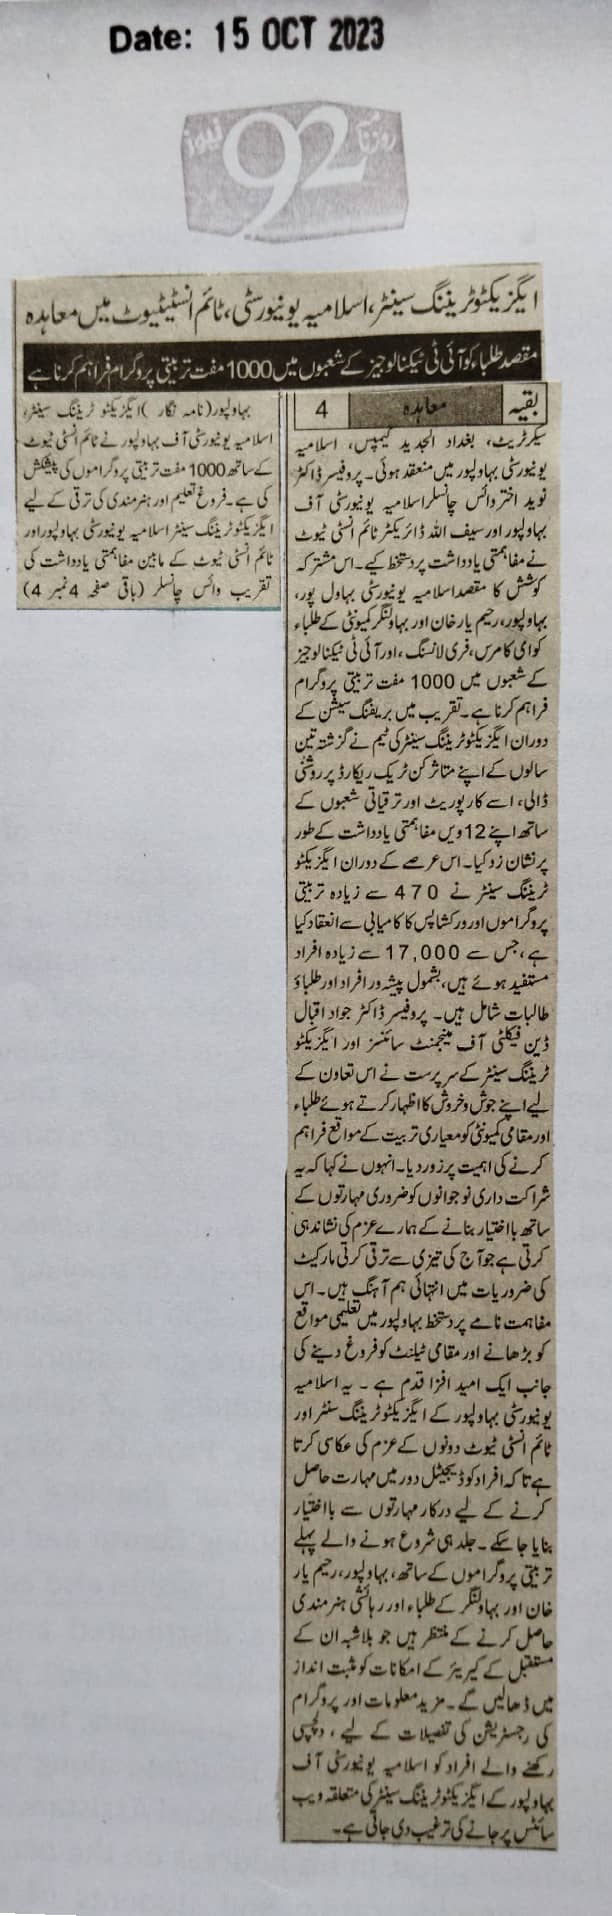 Date: 15 OCT 2023
روزنامہ 92 نیوز
ایگزیکٹو ٹریننگ سینٹر، اسلامیہ یونیورسٹی، ٹائم انسٹیٹیوٹ میں معاہدہ
مقصد طلباء کو آئی ٹی ٹیکنالوجیز کے شعبوں میں 1000 مفت تربیتی پروگرام فراہم کرنا ہے
بہاولپور (نامہ نگار) ایگزیکٹو ٹریننگ سینٹر،
اسلامیہ یونیورسٹی آف بہاولپور نے ٹائم انسٹی ٹیوٹ
کے ساتھ 1000 مفت تربیتی پروگراموں کی پیشکش
کی ہے۔ فروغ تعلیم اور ہنرمندی کی ترقی کے لیے
ایگزیکٹو ٹریننگ سینٹر اسلامیہ یونیورسٹی بہاولپور اور
ٹائم انسٹی ٹیوٹ کے مابین مفاہمتی یادداشت کی
تقریب وائس چانسلر (باقی صفحہ 4 نمبر 4)
بقیہ معاہدہ 4
سیکرٹریٹ، بغداد الجدید کیمپس، اسلامیہ
یونیورسٹی بہاولپور میں منعقد ہوئی۔ پروفیسر ڈاکٹر
نوید اختر وائس چانسلر اسلامیہ یونیورسٹی آف
بہاولپور اور سیف اللہ ڈائریکٹر ٹائم انسٹی ٹیوٹ
نے مفاہمتی یادداشت پر دستخط کیے۔ اس مشترکہ
کوشش کا مقصد اسلامیہ یونیورسٹی بہاول پور،
بہاولپور، رحیم یار خان اور بہاولنگر کمیونٹی کے طلباء
کو ای کامرس، فری لانسنگ، اور آئی ٹی ٹیکنالوجیز
کے شعبوں میں 1000 مفت تربیتی پروگرام
فراہم کرنا ہے۔ تقریب میں بریفنگ سیشن کے
دوران ایگزیکٹو ٹریننگ سینٹر کی ٹیم نے گزشتہ تین
سالوں کے اپنے متاثر کن ٹریک ریکارڈ پر روشنی
ڈالی، اسے کارپوریٹ اور ترقیاتی شعبوں کے
ساتھ اپنے 12 ویں مفاہمتی یادداشت کے طور
پر نشان زد کیا۔ اس عرصے کے دوران ایگزیکٹو
ٹریننگ سینٹر نے 470 سے زیادہ تربیتی
پروگراموں اور ورکشاپس کا کامیابی سے انعقاد کیا
ہے، جس سے 17,000 سے زیادہ افراد
مستفید ہوئے ہیں، بشمول پیشہ ور افراد اور طلباؤ
طالبات شامل ہیں۔ پروفیسر ڈاکٹر جواد اقبال
ڈین فیکلٹی آف مینجمنٹ سائنسز اور ایگزیکٹو
ٹریننگ سینٹر کے سرپرست نے اس تعاون کے
لیے اپنے جوش و خروش کا اظہار کرتے ہوئے طلباء
اور مقامی کمیونٹی کو معیاری تربیت کے مواقع فراہم
کرنے کی اہمیت پر زور دیا۔ انہوں نے کہا کہ یہ
شراکت داری نوجوانوں کو ضروری مہارتوں کے
ساتھ بااختیار بنانے کے ہمارے عزم کی نشاندہی
کرتی ہے جو آج کی تیزی سے ترقی کرتی مارکیٹ
کی ضروریات میں انتہائی ہم آہنگ ہیں۔ اس
مفاہمت نامے پر دستخط بہاولپور میں تعلیمی مواقع
کو بڑھانے اور مقامی ٹیلنٹ کو فروغ دینے کی
جانب ایک امید افزا قدم ہے۔ یہ اسلامیہ
یونیورسٹی بہاولپور کے ایگزیکٹو ٹریننگ سنٹر اور
ٹائم انسٹی ٹیوٹ دونوں کے عزم کی عکاسی کرتا
ہے تاکہ افراد کو ڈیجیٹل دور میں مہارت حاصل
کرنے کے لیے درکار مہارتوں سے بااختیار
بنایا جا سکے۔ جلد ہی شروع ہونے والے پہلے
تربیتی پروگراموں کے ساتھ، بہاولپور، رحیم یار
خان اور بہاولنگر کے طلباء اور رہائشی ہنرمندی
حاصل کرنے کے منتظر ہیں جو بلاشبہ ان کے
مستقبل کے کیریئر کے امکانات کو مثبت انداز
میں ڈھالیں گے۔ مزید معلومات اور پروگرام
کی رجسٹریشن کی تفصیلات کے لیے، دلچسپی
رکھنے والے افراد کو اسلامیہ یونیورسٹی آف
بہاولپور کے ایگزیکٹو ٹریننگ سینٹر کی متعلقہ ویب
سائٹس پر جانے کی ترغیب دی جاتی ہے۔